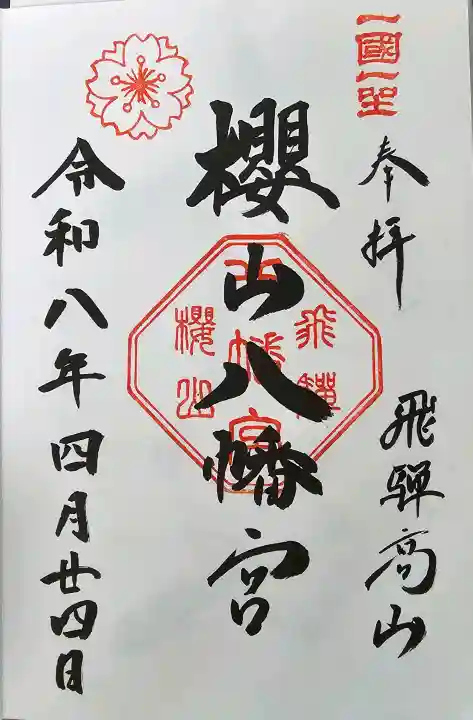 一國一社
奉拝
飛騨高山
櫻山八幡宮
飛驒
八幡宮
櫻山
令和八年四月廿四日